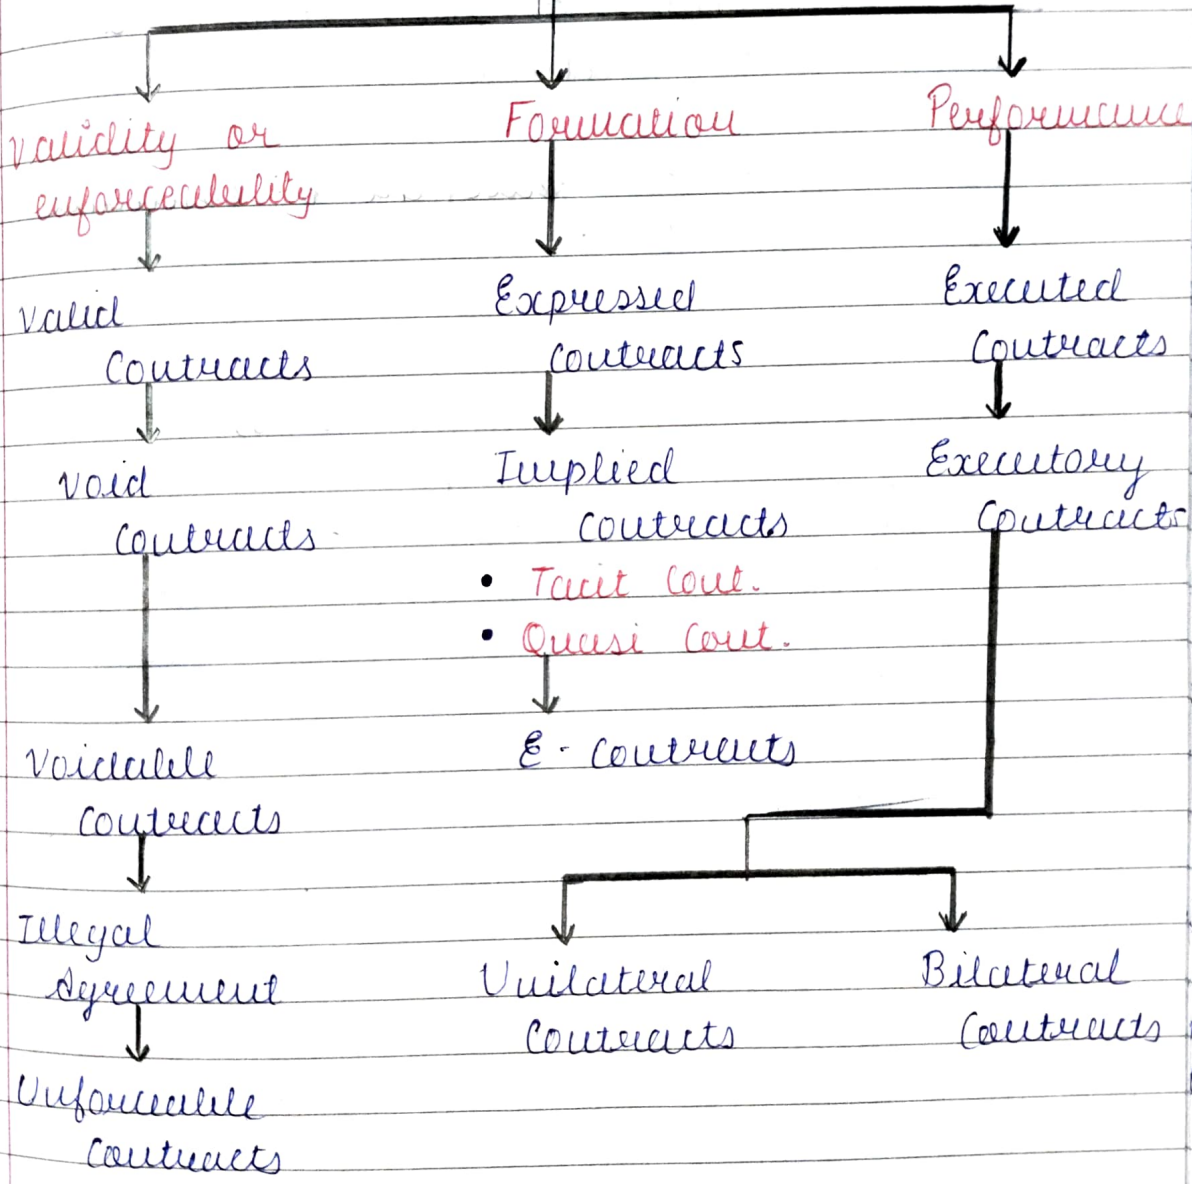 Validity or
enforceability
Valid
Contracts
Void
Contracts
Voidable
Contracts
Illegal
Agreement
Unforceable
Contracts
Formation
Expressed
Contracts
Implied
Contracts
• Tacit Cont.
• Quasi Cont.
E - Contracts
Performance
Executed
Contracts
Executory
Contracts
Unilateral
Contracts
Bilateral
Contracts